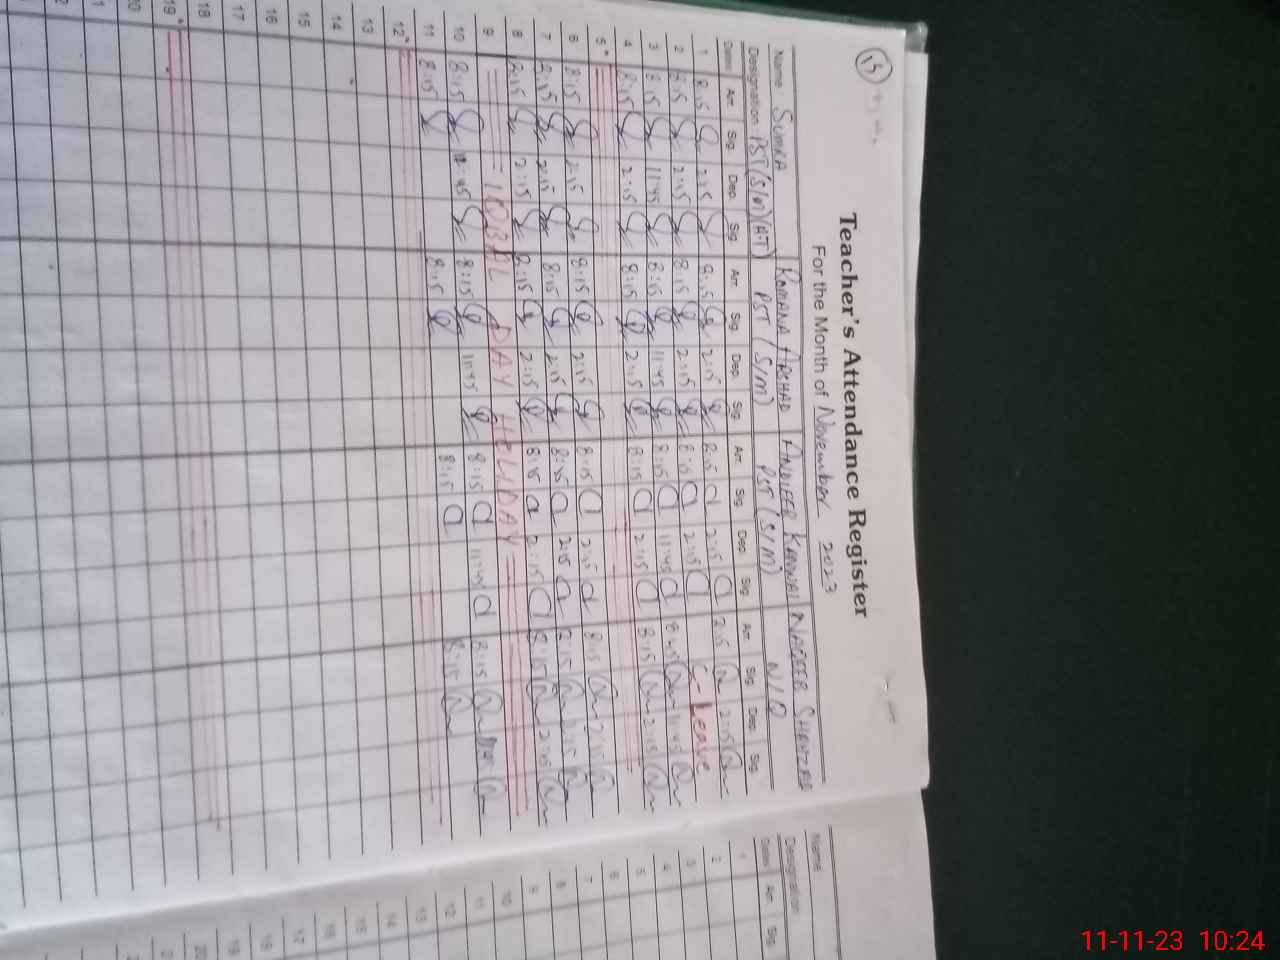 15
Teacher's Attendance Register
For the Month of November 2023
Name SUMRA ROMANA ARSHAD ANDLEEB KANWAL NAGEEB SHAHZAD
Designation PST (S/M) (A.T) PST (S/M) PST (S/M) N/Q
Date Arr. Sig. Dep. Sig. Arr. Sig. Dep. Sig. Arr. Sig. Dep. Sig. Arr. Sig. Dep. Sig.
1 8:15 2:15 8:15 2:15 8:15 2:15 2:15
2 8:15 2:15 8:15 2:15 8:15 2:15 C-Leave
3 8:15 11:45 8:15 11:45 8:15 11:45 11:45
4 8:15 2:15 8:15 2:15 8:15 2:15 8:15 2:15
5*
6 8:15 2:15 8:15 2:15 8:15 2:15 8:15 2:15
7 8:15 2:15 8:15 2:15 8:15 2:15 8:15 2:15
8 8:15 2:15 8:15 2:15 8:15 2:15 8:15 2:15
9 IQBAL DAY HOLIDAY
10 8:15 11:45 8:15 11:45 8:15 11:45 8:15
11 8:15 8:15 8:15 8:15
12*
13
14
15
16
17
18
19*
Name
Designation
Date Arr. Sig.
1
2
3
4
5
6
7
8
9
10
11
12
13
14
15
16
17
18
19
20
11-11-23 10:24